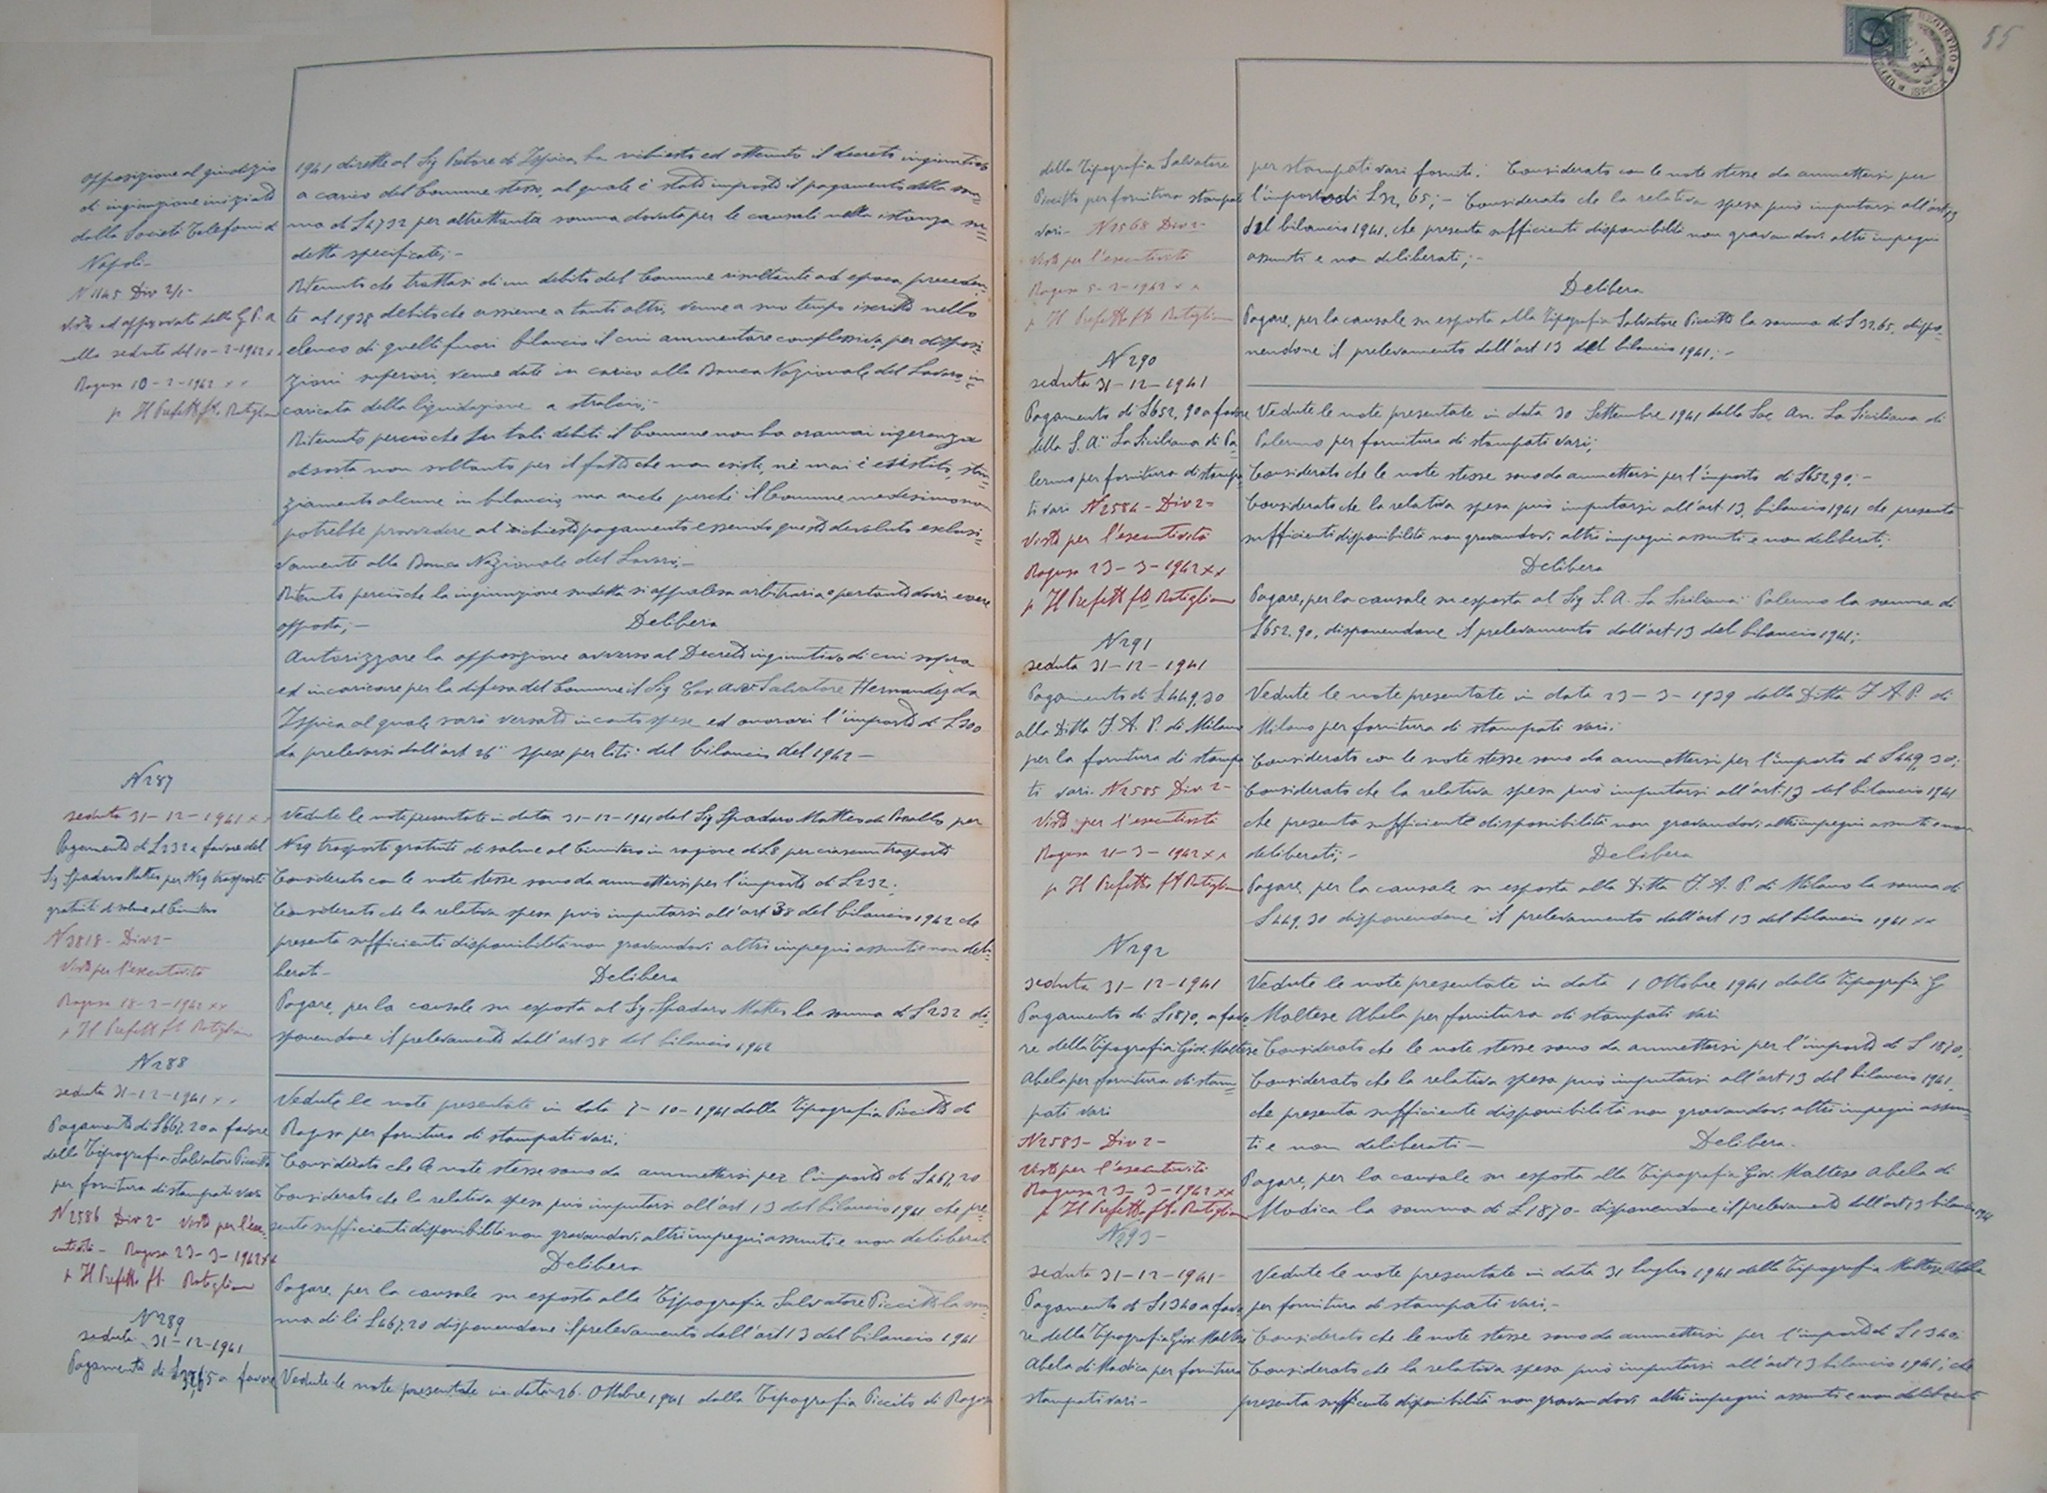 opposizione al giudizio
di ingiunzione iniziato
dalla Società Telefoni di
Napoli -
N 1145 Div 2/1 -
visto ed approvato dalla G. P. A.
nella seduta del 10-2-1942 xx
Ragusa 10-2-1942 xx
p Il Prefetto ft Rotigliano
1941 dirette al Sig Pretore di Ispica, ha richiesto ed ottenuto il decreto ingiuntivo
a carico del Comune stesso, al quale è stato imposto il pagamento della som=
ma di L 4732 per altrettanta somma dovuta per le causali nella istanza su=
detta specificate; -
Ritenuto che trattasi di un debito del Comune risultante ad epoca preceden=
te al 1938 debito che assieme a tanti altri, venne a suo tempo iscritto nello
elenco di quelli fuori bilancio il cui ammontare complessivo, per disposi=
zioni superiori, venne dato in carico alla Banca Nazionale del Lavoro, in=
caricata della liquidazione a stralcio; -
Ritenuto perciò che su tali debiti il Comune non ha oramai ingerenza
di sorta non soltanto per il fatto che non esiste, nè mai è esistito, stan=
ziamento alcuno in bilancio, ma anche perchè il Comune medesimo non
potrebbe provvedere al richiesto pagamento essendo questo devoluto esclusi=
vamente alla Banca Nazionale del Lavoro; -
Ritenuto perciò che la ingiunzione sudetta si appalesa arbitraria e pertanto dovrà essere
opposta; -
Delibera
Autorizzare la opposizione avverso al Decreto ingiuntivo di cui sopra
ed incaricare per la difesa del Comune il Sig Cav Avv Salvatore Hernandez da
Ispica al quale sarà versato in conto spese ed onorari l'importo di L 300
da prelevarsi dall'art 26 "spese per liti" del bilancio del 1942 -
N 287
seduta 31-12-1941 xx
Pagamento di L 232 a favore del
Sig Spadaro Matteo per N 29 trasporti
gratuiti di salme al Cimitero
N 3818 - Div 2 -
Visto per l'esecutività
Ragusa 18-2-1942 xx
p Il Prefetto ft Rotigliano
Vedute le note presentate in data 31-12-1941 dal Sig Spadaro Matteo da Pozallo per
N 29 trasporti gratuiti di salme al Cimitero in ragione di L 8 per ciascun trasporto
Considerato con le note stesse sono da ammettersi per l'importo di L 232.
Considerato che la relativa spesa può imputarsi all'art 38 del bilancio 1942 che
presenta sufficienti disponibilità non gravandovi altri impegni assunti e non deli=
berati -
Delibera
Pagare, per la causale su esposta al Sig. Spadaro Matteo la somma di L 232 di=
sponendone il prelevamento dall'art 38 del bilancio 1942
N 288
seduta 31-12-1941 xx
Pagamento di L 467.20 a favore
della Tipografia Salvatore Piccitto
per fornitura di stampati vari
N 2586 Div 2 - Visto per l'ese=
cutività - Ragusa 23-3-1942 xx
p Il Prefetto ft. Rotigliano
Vedute le note presentate in data 7-10-1941 dalla Tipografia Piccitto di
Ragusa per fornitura di stampati vari.
Considerato che le note stesse sono da ammettersi per l'importo di L 467,20
Considerato che la relativa spesa può imputarsi all'art 13 del bilancio 1941 che pre=
senta sufficienti disponibilità non gravandovi altri impegni assunti e non deliberati
Delibera
Pagare, per la causale su esposta alla Tipografia Salvatore Piccitto la som=
ma di L 467.20 disponendone il prelevamento dall'art 13 del bilancio 1941
N 289
seduta 31-12-1941
Pagamento di L 32,65 a favore
Vedute le note presentate in data 26 Ottobre 1941 dalla Tipografia Piccito di Ragusa
55
della Tipografia Salvatore
Piccitto per fornitura stampati
vari - N 2568 Div 2 -
Visto per l'esecutività
Ragusa 5-2-1942 xx
p Il Prefetto ft Rotigliano
per stampati vari forniti. Considerato con le note stesse da ammettersi per
l'importo di L 32,65; - Considerato che la relativa spesa può imputarsi all'art 13
del bilancio 1941, che presenta sufficienti disponibilità non gravandovi altri impegni
assunti e non deliberati; -
Delibera
Pagare, per la causale su esposta alla Tipografia Salvatore Piccitto la somma di L 32.65, dispo=
nendone il prelevamento dall'art 13 del bilancio 1941; -
N 290
seduta 31-12-1941
Pagamento di L 652.90 a favore
della S. A. "La Siciliana di Pa=
lermo per fornitura di stampa=
ti vari N 2584 - Div 2 -
Visto per l'esecutività
Ragusa 23-3-1942 xx
p Il Prefetto ft Rotigliano
Vedute le note presentate in data 30 Settembre 1941 dalla Soc An. La Siciliana di
Palermo per fornitura di stampati vari;
Considerato che le note stesse sono da ammettersi per l'importo di L 652,90; -
Considerato che la relativa spesa può imputarsi all'art 13, bilancio 1941 che presenta
sufficienti disponibilità non gravandovi altri impegni assunti e non deliberati;
Delibera
Pagare, per la causale su esposta al Sig S. A. La Siciliana Palermo la somma di
L 652.90, disponendone il prelevamento dall'art 13 del bilancio 1941;
N 291
seduta 31-12-1941
Pagamento di L 449,30
alla Ditta I. A. P. di Milano
per la fornitura di stampa
ti vari - N 2585 Div 2 -
Visto per l'esecutività
Ragusa 21-3-1942 xx
p Il Prefetto ft Rotigliano
Vedute le note presentate in data 23-3-1939 dalla Ditta I. A. P. di
Milano per fornitura di stampati vari;
Considerato con le note stesse sono da ammettersi per l'importo di L 449,30;
Considerato che la relativa spesa può imputarsi all'art. 13 del bilancio 1941
che presenta sufficiente disponibilità non gravandovi altri impegni assunti e non
deliberati; -
Delibera
Pagare, per la causale su esposta alla Ditta I. A. P. di Milano la somma di
L 449.30 disponendone il prelevamento dall'art 13 del bilancio 1941 xx
N 292
seduta 31-12-1941
Pagamento di L 1870, a favo=
re della Tipografia Giov. Maltese
Abela per fornitura di stam=
pati vari
N 2583 - Div 2 -
Visto per l'esecutività
Ragusa 23-3-1942 xx
p Il Prefetto ft. Rotigliano
Vedute le note presentate in data 1 Ottobre 1941 dalla Tipografia G
Maltese Abela per fornitura di stampati vari
Considerato che le note stesse sono da ammettersi per l'importo di L 1870,
Considerato che la relativa spesa può imputarsi all'art 13 del bilancio 1941,
che presenta sufficiente disponibilità non gravandovi altri impegni assun=
ti e non deliberati -
Delibera -
Pagare, per la causale su esposta alla Tipografia Giov. Maltese Abela di
Modica la somma di L 1870 - disponendone il prelevamento dall'art 13 bilancio 1941
N 293 -
seduta 31-12-1941 -
Pagamento di L 1340 a favo
re della Tipografia Giov. Maltese
Abela di Modica per fornitura
stampati vari -
Vedute le note presentate in data 31 luglio 1941 dalla Tipografia Maltese Abela
per fornitura di stampati vari; -
Considerato che le note stesse sono da ammettersi per l'importo di L 1340
Considerato che la relativa spesa può imputarsi all'art 13 bilancio 1941; che
presenta sufficiente disponibilità non gravandovi altri impegni assunti e non deliberati